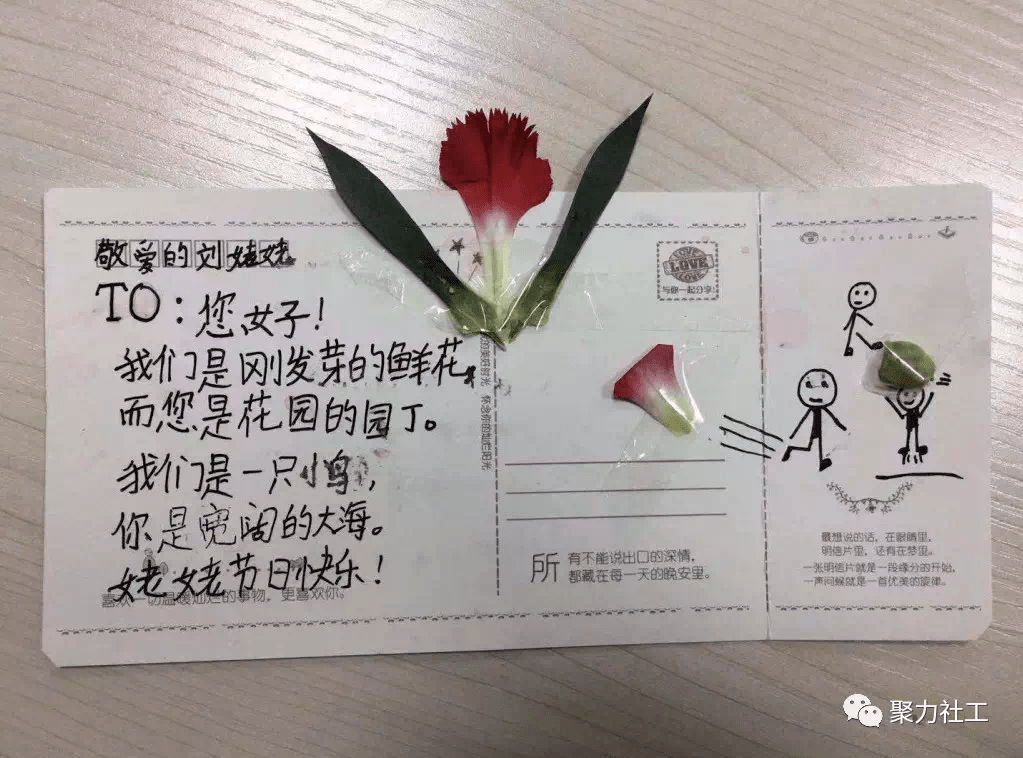 敬爱的刘姥姥
TO：您女子！
我们是刚发芽的鲜花，
而您是花园的园丁。
我们是一只小鸟，
你是宽阔的大海。
姥姥节日快乐！
喜欢一切温暖灿烂的事物，更喜欢你。
LOVE
LOVE
与你一起分享！
所
有不能说出口的深情，
都藏在每一天的晚安里。
最想说的话，在眼睛里，
明信片里，还有在梦里。
一张明信片就是一段缘分的开始，
一声问候就是一首优美的旋律。
聚力社工